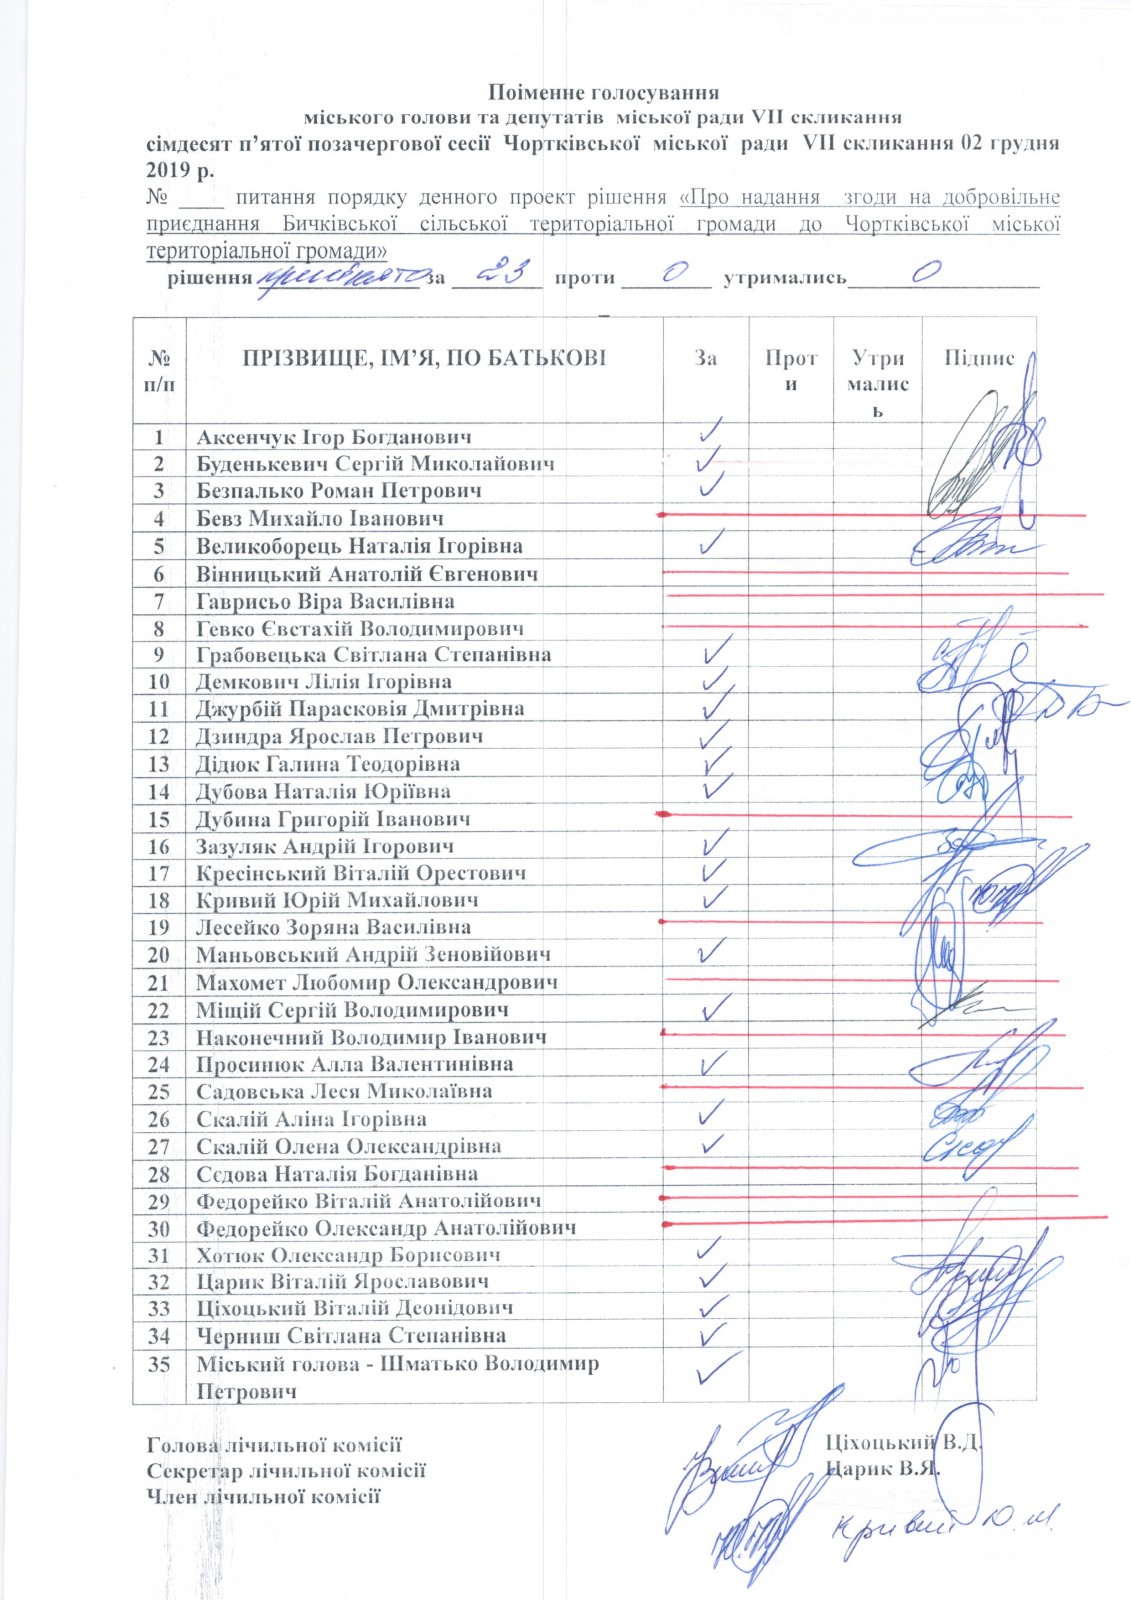 Поіменне голосування
міського голови та депутатів міської ради VII скликання
сімдесят п’ятої позачергової сесії Чортківської міської ради VII скликання 02 грудня
2019 р.
№ ____ питання порядку денного проект рішення «Про надання згоди на добровільне
приєднання Бичківської сільської територіальної громади до Чортківської міської
територіальної громади»
рішення прийнято за 23 проти 0 утримались 0
№ п/п ПРІЗВИЩЕ, ІМ’Я, ПО БАТЬКОВІ За Проти Утрималис Підпис
ь
1 Аксенчук Ігор Богданович ✓
2 Буденькевич Сергій Миколайович ✓
3 Безпалько Роман Петрович ✓
4 Бевз Михайло Іванович
5 Великоборець Наталія Ігорівна ✓
6 Вінницький Анатолій Євгенович
7 Гаврисьо Віра Василівна
8 Гевко Євстахій Володимирович
9 Грабовецька Світлана Степанівна ✓
10 Демкович Лілія Ігорівна ✓
11 Джурбій Парасковія Дмитрівна ✓
12 Дзиндра Ярослав Петрович ✓
13 Дідюк Галина Теодорівна ✓
14 Дубова Наталія Юріївна ✓
15 Дубина Григорій Іванович
16 Зазуляк Андрій Ігорович ✓
17 Кресінський Віталій Орестович ✓
18 Кривий Юрій Михайлович ✓
19 Лесейко Зоряна Василівна
20 Маньовський Андрій Зеновійович ✓
21 Махомет Любомир Олександрович
22 Міщій Сергій Володимирович ✓
23 Наконечний Володимир Іванович
24 Просинюк Алла Валентинівна ✓
25 Садовська Леся Миколаївна
26 Скалій Аліна Ігорівна ✓
27 Скалій Олена Олександрівна ✓
28 Сєдова Наталія Богданівна
29 Федорейко Віталій Анатолійович
30 Федорейко Олександр Анатолійович
31 Хотюк Олександр Борисович ✓
32 Царик Віталій Ярославович ✓
33 Ціхоцький Віталій Деонідович ✓
34 Черниш Світлана Степанівна ✓
35 Міський голова - Шматько Володимир ✓
Петрович
Голова лічильної комісії Ціхоцький В.Д.
Секретар лічильної комісії Царик В.Я.
Член лічильної комісії
Кривий Ю.М.